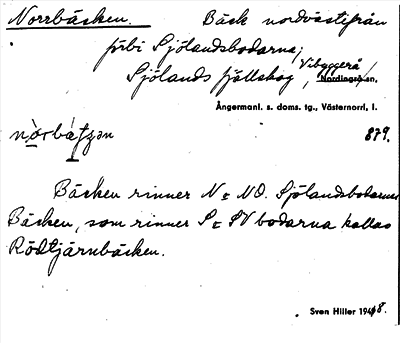 Norrbäcken. Bäck nordvästifrån
förbi Sjölandsbodarna;
Sjölands fjällskog, Vibyggerå
Nordingrå sn.
Ångermanl. s. doms. tg., Västernorrl. l.
879.
Bäcken rinner N & NO. Sjölandsbodarna
Bäcken, som rinner S & SV bodarna kallas
Rödtjärnbäcken.
Sven Hiller 1948.